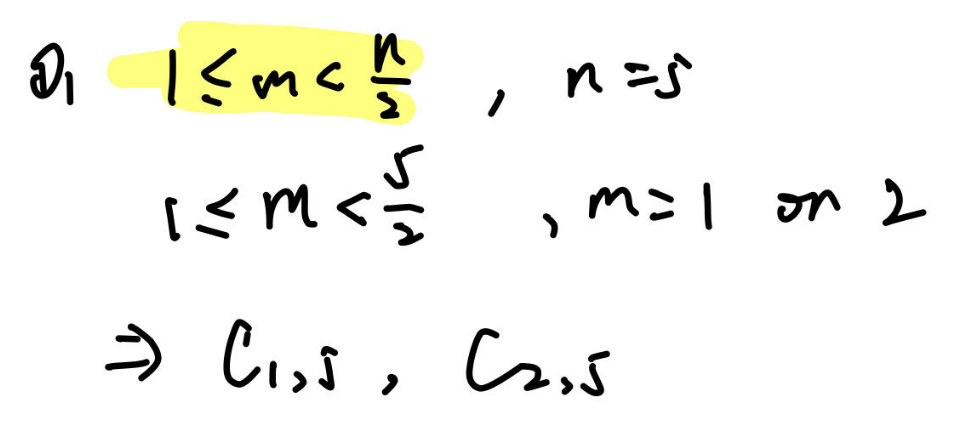 ①₁ 1 ≤ m < n/2 , n = 5
1 ≤ m < 5/2 , m = 1 or 2
⇒ C₁,₅ , C₂,₅